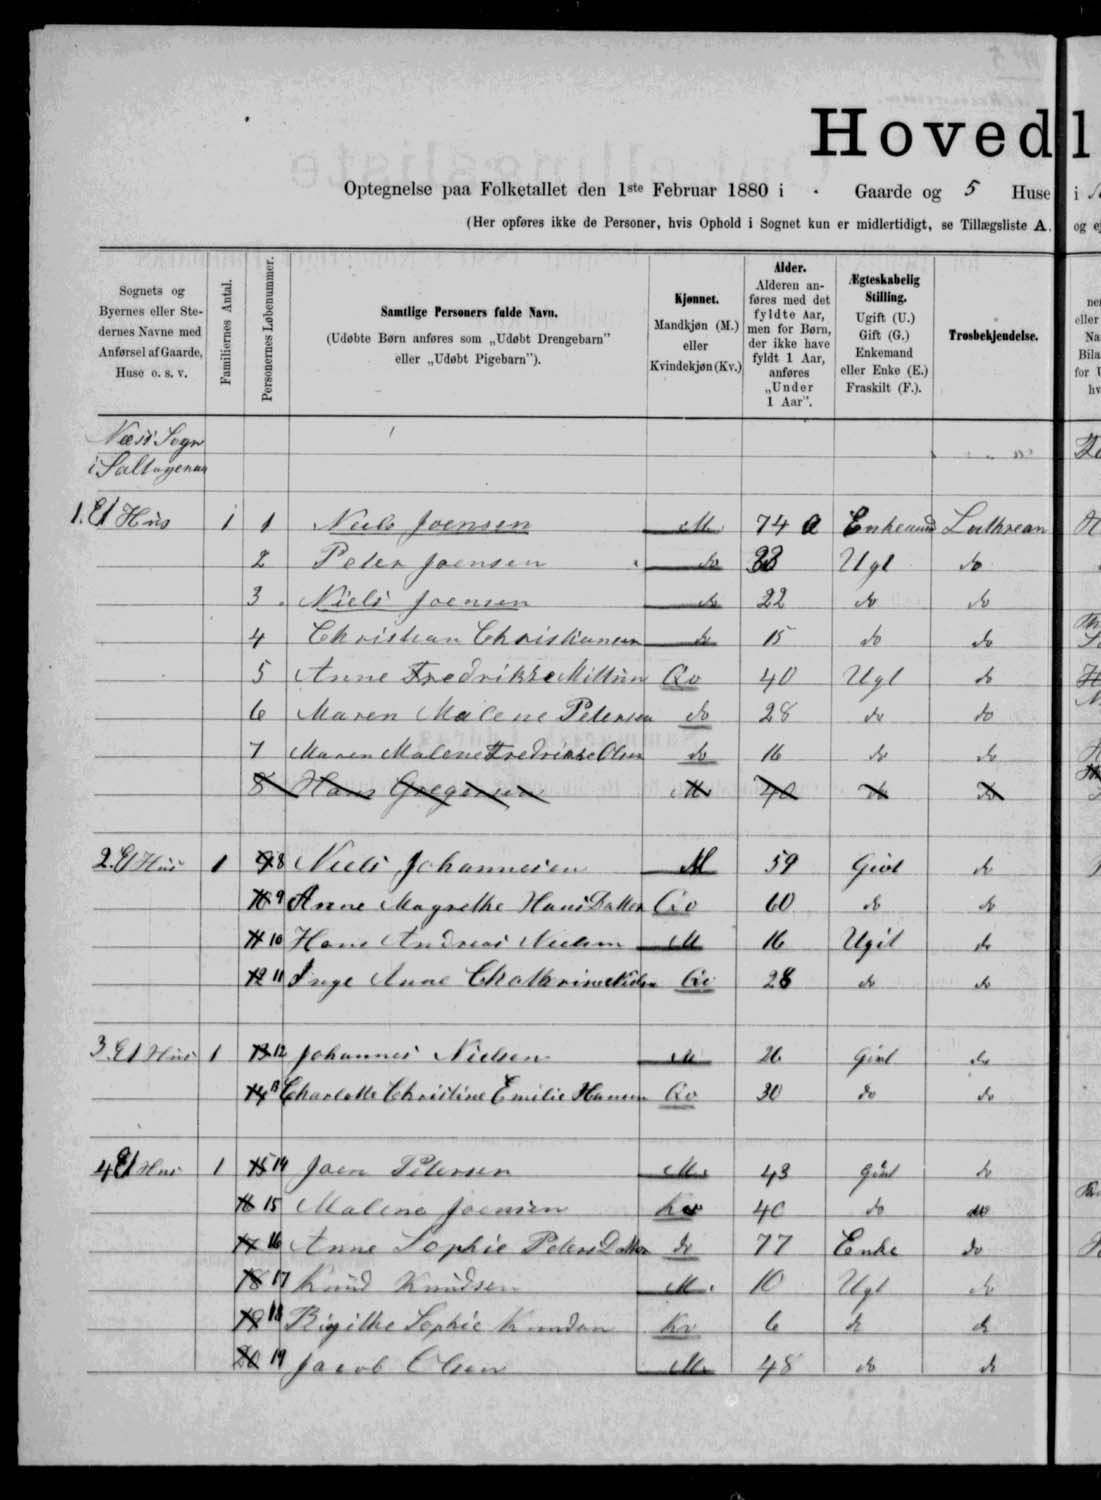 Hovedl
Optegnelse paa Folketallet den 1ste Februar 1880 i - Gaarde og 5 Huse i
(Her opføres ikke de Personer, hvis Ophold i Sognet kun er midlertidigt, se Tillægsliste A. og ej
Sognets og Byernes eller Stedernes Navne med Anførsel af Gaarde, Huse o. s. v.
Familiernes Antal.
Personernes Løbenummer.
Samtlige Personers fulde Navn.
(Udøbte Børn anføres som „Udøbt Drengebarn"
eller „Udøbt Pigebarn").
Kjønnet.
Mandkjøn (M.)
eller
Kvindekjøn (Kv.)
Alder.
Alderen an-
føres med det
fyldte Aar,
men for Børn,
der ikke have
fyldt 1 Aar,
anføres
„Under
1 Aar".
Ægteskabelig
Stilling.
Ugift (U.)
Gift (G.)
Enkemand
eller Enke (E.)
Fraskilt (F.).
Trosbekjendelse.
Næs Sogn
i
1. Et Hus 1 1 Niels Joensen M 74 Enkemand Luthrean
2 Peter Joensen do Ugt do
3 Niels Joensen do 22 do do
4 Christian Christiansen do 15 do do
5 Anne Fredrikke Qv 40 Ugt do
6 Maren Malene Petersen do 28 do do
7 Maren Malene Fredrikke Olsen do 16 do do
8 Hans Gregersen M 40 do do
2. Et Hus 1 9 8 Niels Johannesen M 59 Givt do
10 9 Anne Magrethe Hans Datter Qv 60 do do
11 10 Hans Andreas Nielsen M 16 Ugit do
12 11 Inge Anne Chathrine Nielsen Qv 28 do do
3 Et Hus 1 13 12 Johannes Nielsen M 26 Givt do
14 13 Charlotte Christine Emilie Hansen Qv 30 do do
4 Et Hus 1 15 14 Joen Petersen M 43 Givt do
16 15 Malene Joensen Kv 40 do do
17 16 Anne Sophie Peters Datter do 77 Enke do
18 17 Knud Knudsen M. 10 Ugt do
19 18 Bigitte Sophie Knudsen Kv 6 do do
20 19 Jacob Olsen M 48 do do